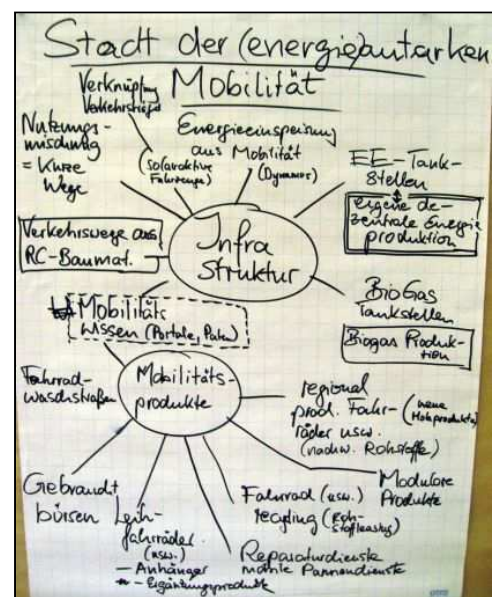 Stadt der (energie)autarken
Mobilität
Verknüpfung
Verkehrsträger
Nutzungs-
mischung
= Kurze
Wege
(solaraktive
Fahrzeuge)
Energieeinspeisung
aus Mobilität
(Dynamos)
EE-Tank-
stellen
eigene de-
zentrale Energie
produktion
Verkehrswege aus
RC-Baumat.
Infra
struktur
BioGas
Tankstellen
Biogas Produk-
tion
Mobilitäts
wissen (Portale, Paten)
Fahrrad-
waschstraßen
Mobilitäts-
produkte
regional
prod. Fahr-
räder usw.
(nachw. Rohstoffe)
(neue
Holzprodukte)
Modulare
Produkte
Gebraucht
börsen
Leih-
fahrräder
(usw.)
- Anhänger
- Ergänzungsprodukte
Fahrrad (usw.)
recycling (Roh-
stoffleasing)
Reparaturdienste
mobile Pannendienste